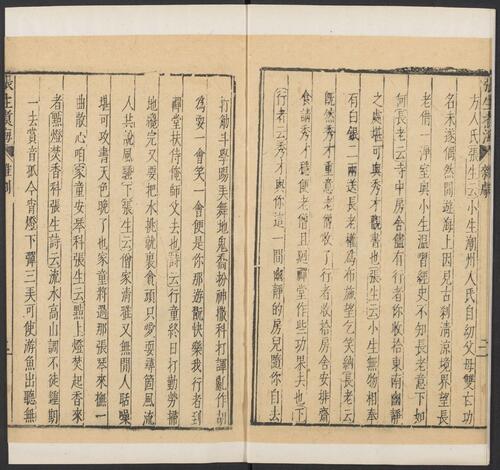 張生煑海 雜劇 二
方人氏張生云小生潮州人氏自幼父母雙亡功
名未遂偶然閒遊海上因見古刹清凉境界望長
老借一淨室與小生溫習經史不知長老意下如
何長老云寺中房舍儘有行者你收拾東南幽靜
之處堪可與秀才觀書也張生云小生無物相奉
有白銀二兩送長老權為布施望乞笑納長老云
既然秀才重意老僧收了行者收拾房舍安排齋
食請秀才穩便老僧且到禪堂作些功果去也下
行者云秀才與你這一間幽靜的房兒隨你自去
打觔斗學踢弄舞地鬼喬扮神撒科打諢亂作胡
為耍一會笑一會便是你那遊翫快樂我行者到
禪堂扶侍俺師父去也詩云行童終日打勤勞掃
地纔完又要把水挑就裏貪頑只愛耍尋箇風流
人共說風騷下張生云僧家清雅又無閒人聒噪
堪可攻書天色晚了也家童將過那張琴來撫一
曲散心咱家童安琴科張生云點上燈焚起香來
者點燈焚香科張生詩云流水高山調不徒鍾期
一去賞音孤今宵燈下彈三弄可使游魚出聽無
張生煑海 雜劇